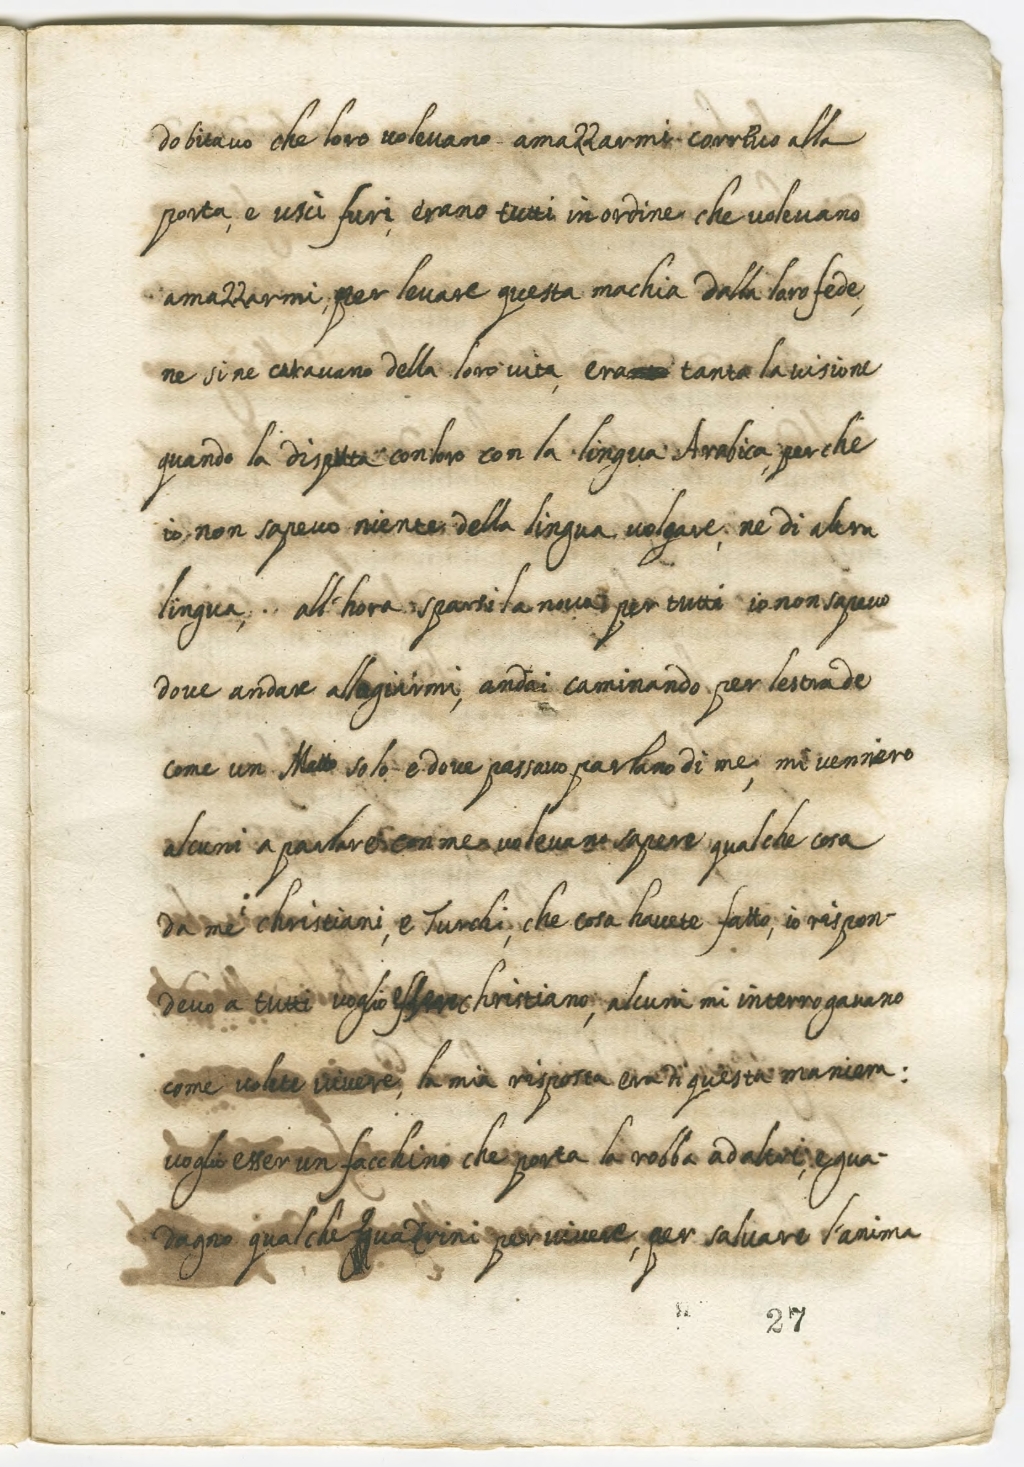 dobitauo che loro uoleuano amazzarmi corriuo alla
porta, e uscì furi, erano tutti in ordine che uoleuano
amazzarmi, per leuare questa machia dalla loro fede,
ne si ne curauano della loro uita, era tanta la uisione
quando la disputa con loro con la lingua Arabica, perche
io non sapeuo niente della lingua uolgare, ne di altra
lingua, all'hora sparsi la noua per tutti io non sapeuo
doue andare allogiarmi, andai caminando per le strade
come un Matto solo e doue passauo parlano di me, mi venniero
alcuni a parlare con me uoleuano sapere qualche cosa
da me i christiani, e Turchi, che cosa hauete fatto, io rispon-
deuo a tutti uoglio esser christiano, alcuni mi interrogauano
come uolete uiuere, la mia risposta era di questa maniera:
uoglio esser un facchino che porta la robba ad altri, e gua-
dagno qualche quadrini per uiuere, per saluare l'anima
27